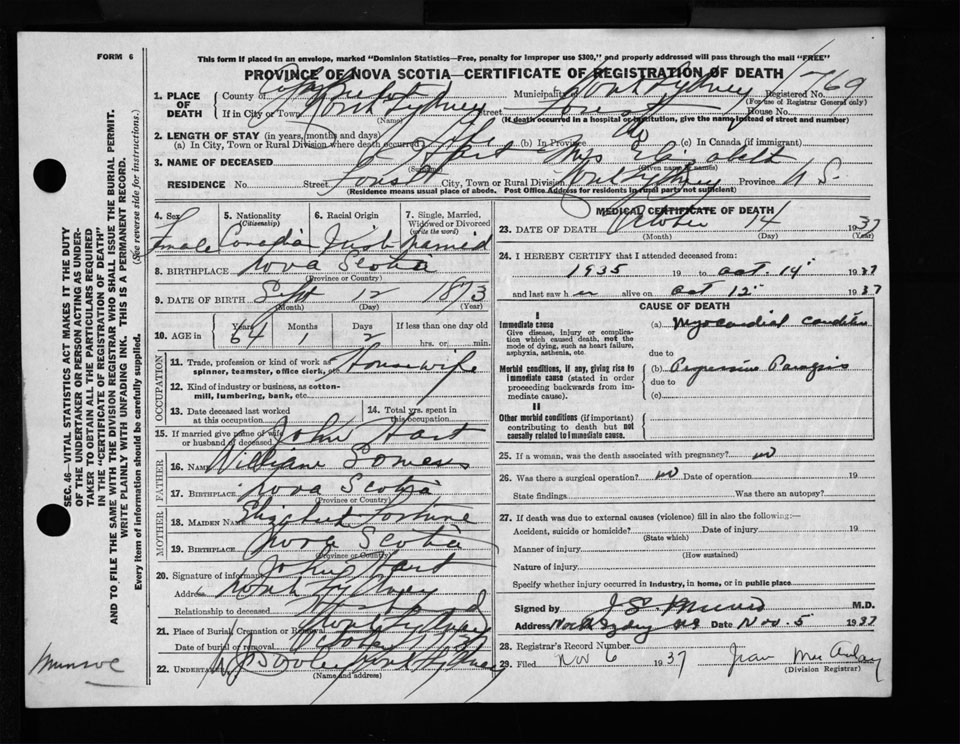 FORM 6
This form if placed in an envelope, marked "Dominion Statistics—Free, penalty for improper use $300," and properly addressed will pass through the mail "FREE"
PROVINCE OF NOVA SCOTIA—CERTIFICATE OF REGISTRATION OF DEATH
1769
1. PLACE OF DEATH
County of Municipality North Sydney Registered No.
(For use of Registrar General only)
If in City or Town North Sydney Street Forest House No.
(Name) (If death occurred in a hospital or institution, give the name instead of street and number)
2. LENGTH OF STAY (in years, months and days)
(a) In City, Town or Rural Division where death occurred Life (b) In Province (c) In Canada (if immigrant)
3. NAME OF DECEASED Hart Mrs Elizabeth
(Surname) (Given name or names)
RESIDENCE No. Street Forest City, Town or Rural Division North Sydney Province N S.
(Residence means usual place of abode. Post Office Address for residents in rural parts not sufficient)
4. Sex 5. Nationality 6. Racial Origin 7. Single, Married, Widowed or Divorced
(Citizenship) (write the word)
Female Canadian Irish Married
8. BIRTHPLACE Nova Scotia
(Province or Country)
9. DATE OF BIRTH Sept 12 1873
(Month) (Day) (Year)
10. AGE in Years Months Days If less than one day old
64 1 2 hrs. or min.
OCCUPATION
11. Trade, profession or kind of work as spinner, teamster, office clerk, etc. Housewife
12. Kind of industry or business, as cotton-mill, lumbering, bank, etc.
13. Date deceased last worked at this occupation 14. Total yrs. spent in this occupation
15. If married give name of wife or husband of deceased John Hart
FATHER
16. NAME William Somers
17. BIRTHPLACE Nova Scotia
(Province or Country)
MOTHER
18. MAIDEN NAME Elizabeth
19. BIRTHPLACE Nova Scotia
(Province or Country)
20. Signature of informant John Hart
Address North Sydney
Relationship to deceased Husband
21. Place of Burial, Cremation or Removal North Sydney
Date of burial or removal
22. UNDERTAKER North Sydney
(Name and address)
MEDICAL CERTIFICATE OF DEATH
23. DATE OF DEATH October 14 1937
(Month) (Day) (Year)
24. I HEREBY CERTIFY that I attended deceased from:
1935 19 to Oct. 14 1937
and last saw her alive on Oct 12 1937
CAUSE OF DEATH
I
Immediate cause
Give disease, injury or complication which caused death, not the mode of dying, such as heart failure, asphyxia, asthenia, etc.
(a) Myocardial condition
due to
Morbid conditions, if any, giving rise to immediate cause (stated in order proceeding backwards from immediate cause).
(b) Progressive Paralysis
due to
(c)
II
Other morbid conditions (if important) contributing to death but not causally related to immediate cause.
25. If a woman, was the death associated with pregnancy? no
26. Was there a surgical operation? no Date of operation 19
State findings Was there an autopsy?
27. If death was due to external causes (violence) fill in also the following:—
Accident, suicide or homicide? Date of injury 19
(State which)
Manner of injury
(How sustained)
Nature of injury
Specify whether injury occurred in industry, in home, or in public place
Signed by J S. Munro M.D.
Address North Sydney NS Date Nov. 5 1937
28. Registrar's Record Number
29. Filed Nov 6 1937 Jean
(Division Registrar)
SEC. 46—VITAL STATISTICS ACT MAKES IT THE DUTY
OF THE UNDERTAKER OR PERSON ACTING AS UNDERTAKER TO OBTAIN ALL THE PARTICULARS REQUIRED
IN THE "CERTIFICATE OF REGISTRATION OF DEATH"
AND TO FILE THE SAME WITH THE DIVISION REGISTRAR WHO SHALL ISSUE THE BURIAL PERMIT.
WRITE PLAINLY WITH UNFADING INK. THIS IS A PERMANENT RECORD.
Every item of information should be carefully supplied. (See reverse side for instructions.)
Munroe